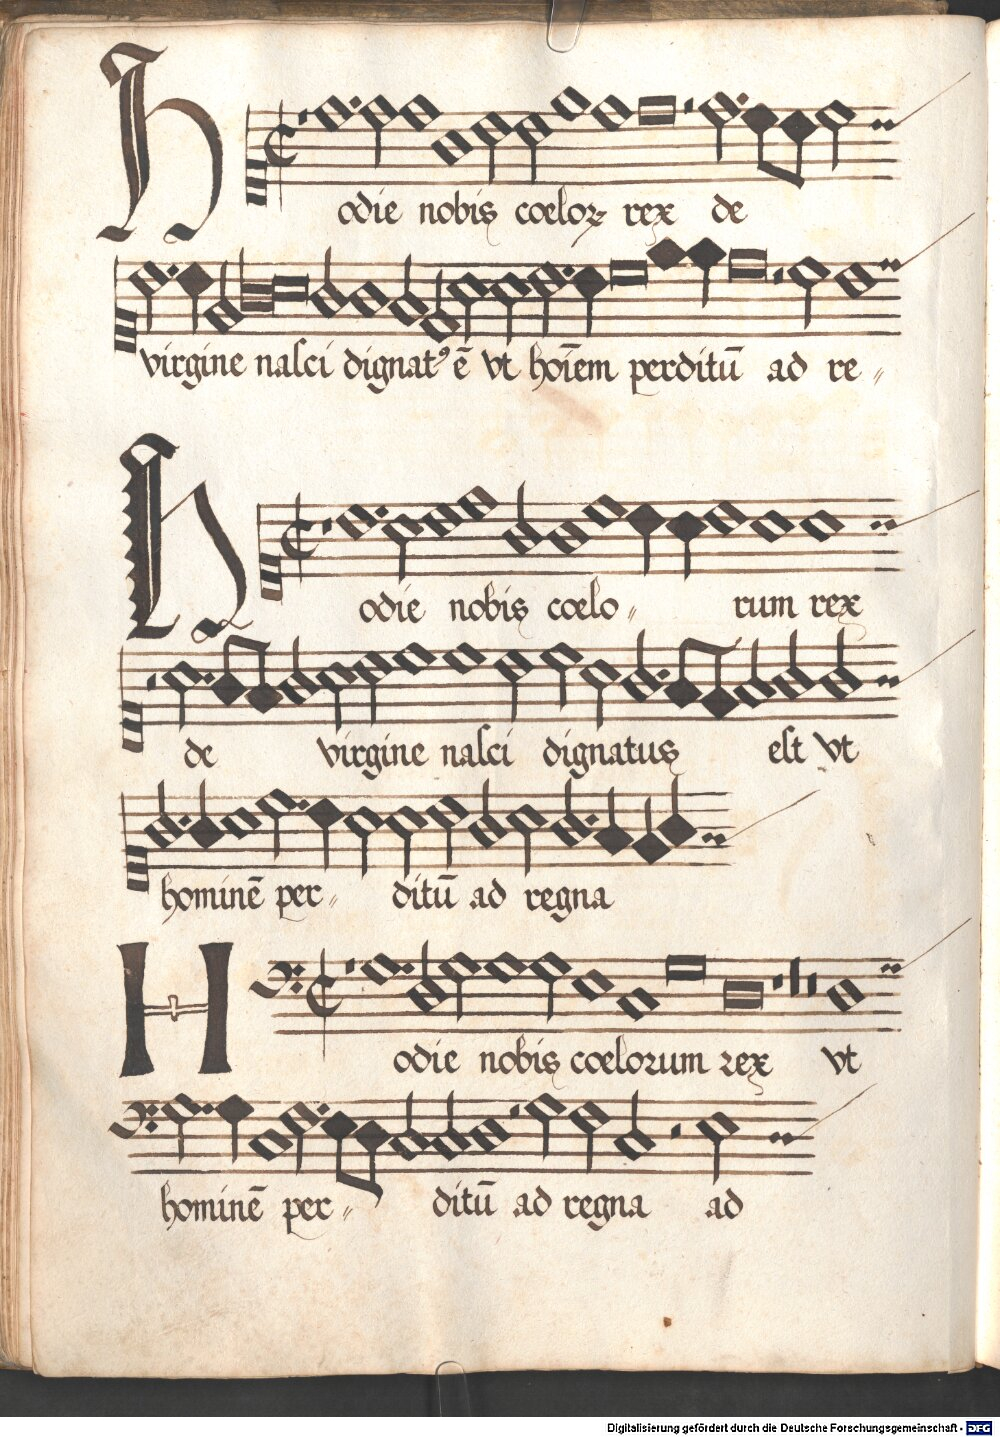 Hodie nobis coeloꝝ rex de
virgine nasci dignatꝰ ē vt hoīem perditū ad re-
Hodie nobis coelo- rum rex
de virgine nasci dignatus est vt
hominē per- ditū ad regna
Hodie nobis coelorum rex vt
hominē per- ditū ad regna ad
Digitalisierung gefördert durch die Deutsche Forschungsgemeinschaft - DFG